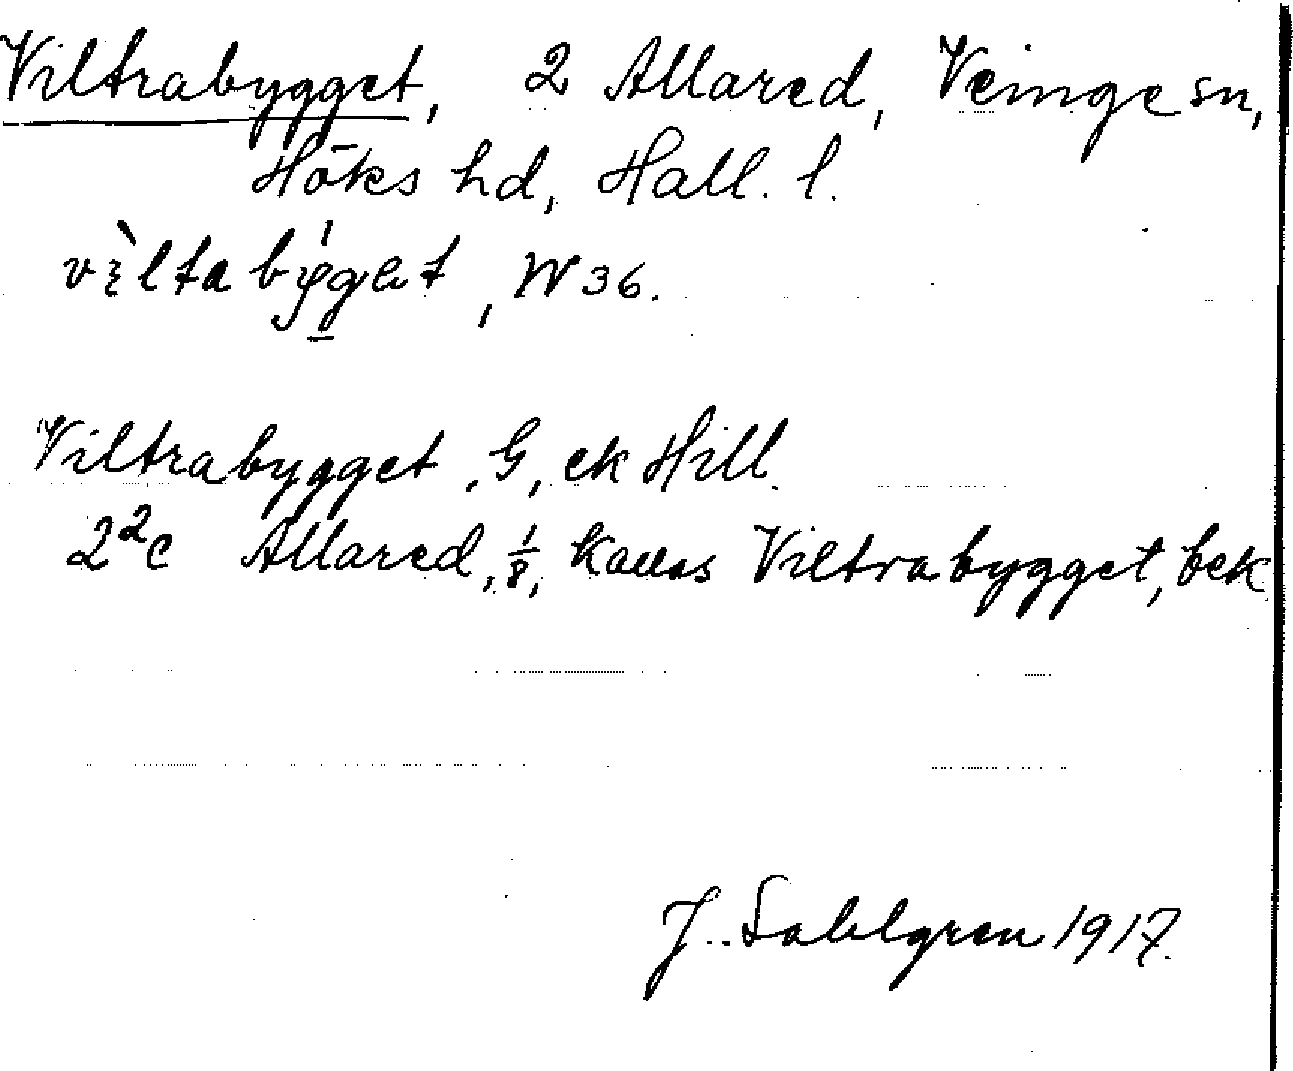 Viltrabygget, 2 Allared, Veinge sn,
Höks hd, Hall. l.
W 36.
Viltrabygget, G, ek Hill.
2²c Allared, 1/8, kallas Viltrabygget, bek
J. Sahlgren 1917.